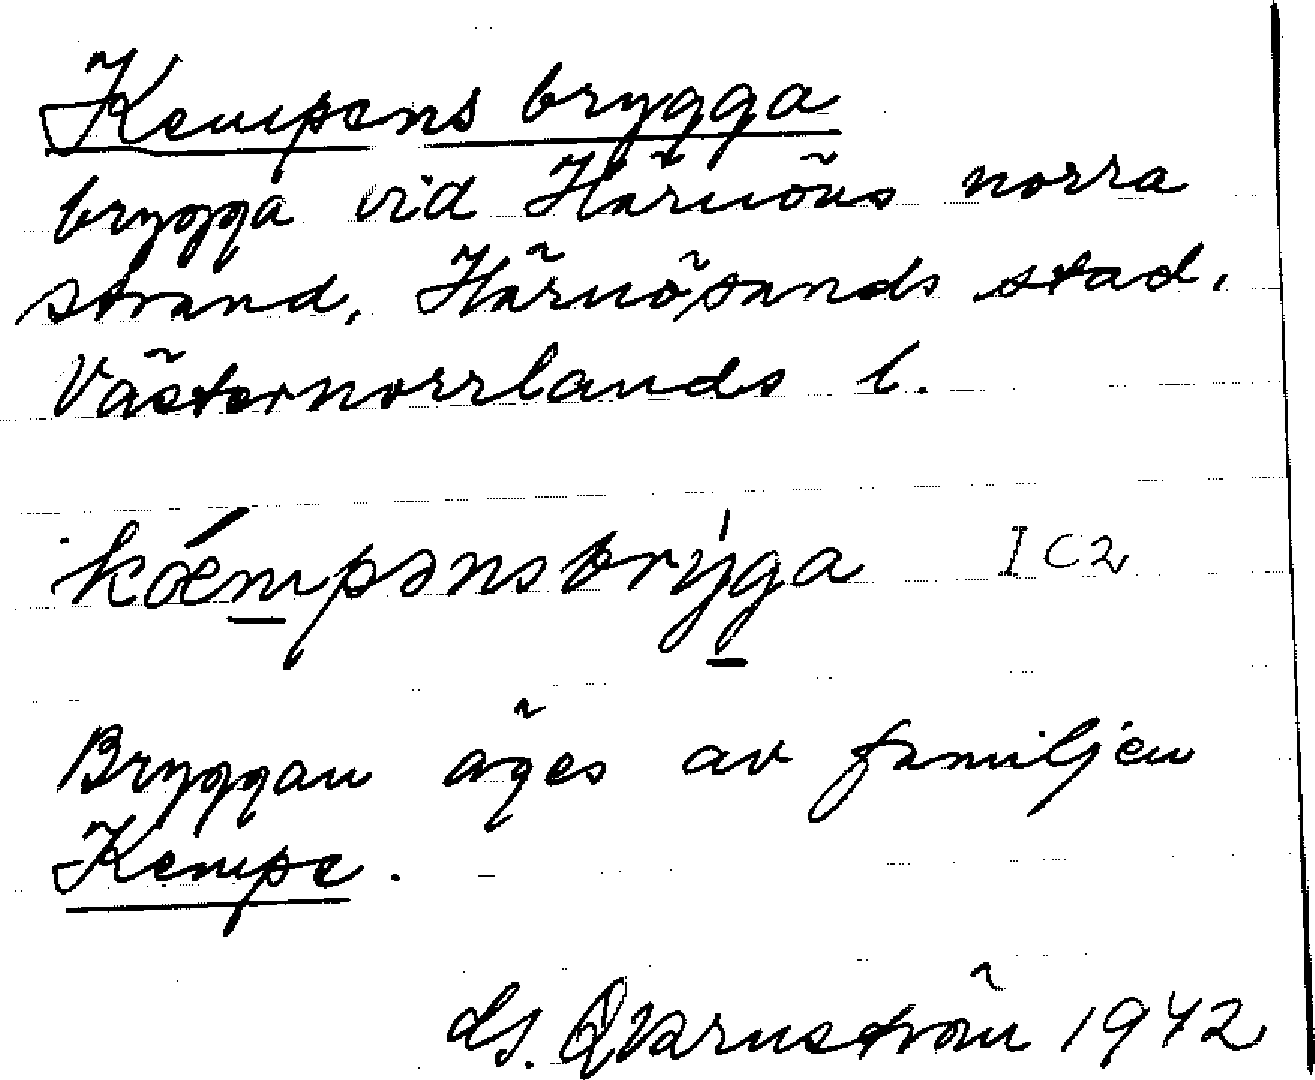 Kempens brygga
brygga vid Härnöns norra
strand, Härnösands stad,
Västernorrlands l.
kæ̀mpənsbrẏga I C 2
Bryggan äges av familjen
Kempe.
Qvarnström 1942